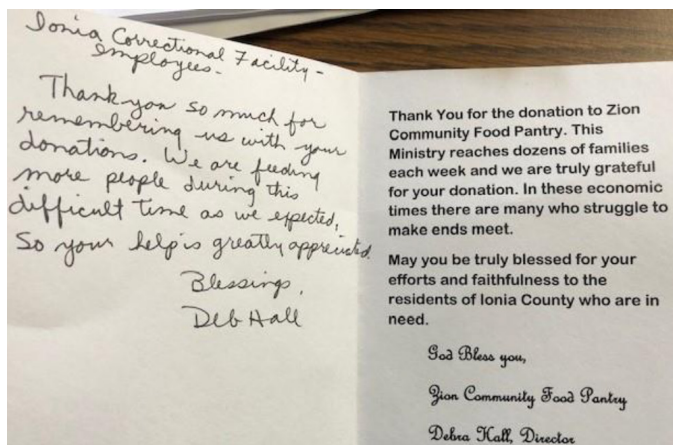 Ionia Correctional Facility -
employees -
Thank you so much for
remembering us with your
donations. We are feeding
more people during this
difficult time as we expected,
So your help is greatly appreciated.
Blessings,
Deb Hall
Thank You for the donation to Zion
Community Food Pantry. This
Ministry reaches dozens of families
each week and we are truly grateful
for your donation. In these economic
times there are many who struggle to
make ends meet.
May you be truly blessed for your
efforts and faithfulness to the
residents of Ionia County who are in
need.
God Bless you,
Zion Community Food Pantry
Debra Hall, Director